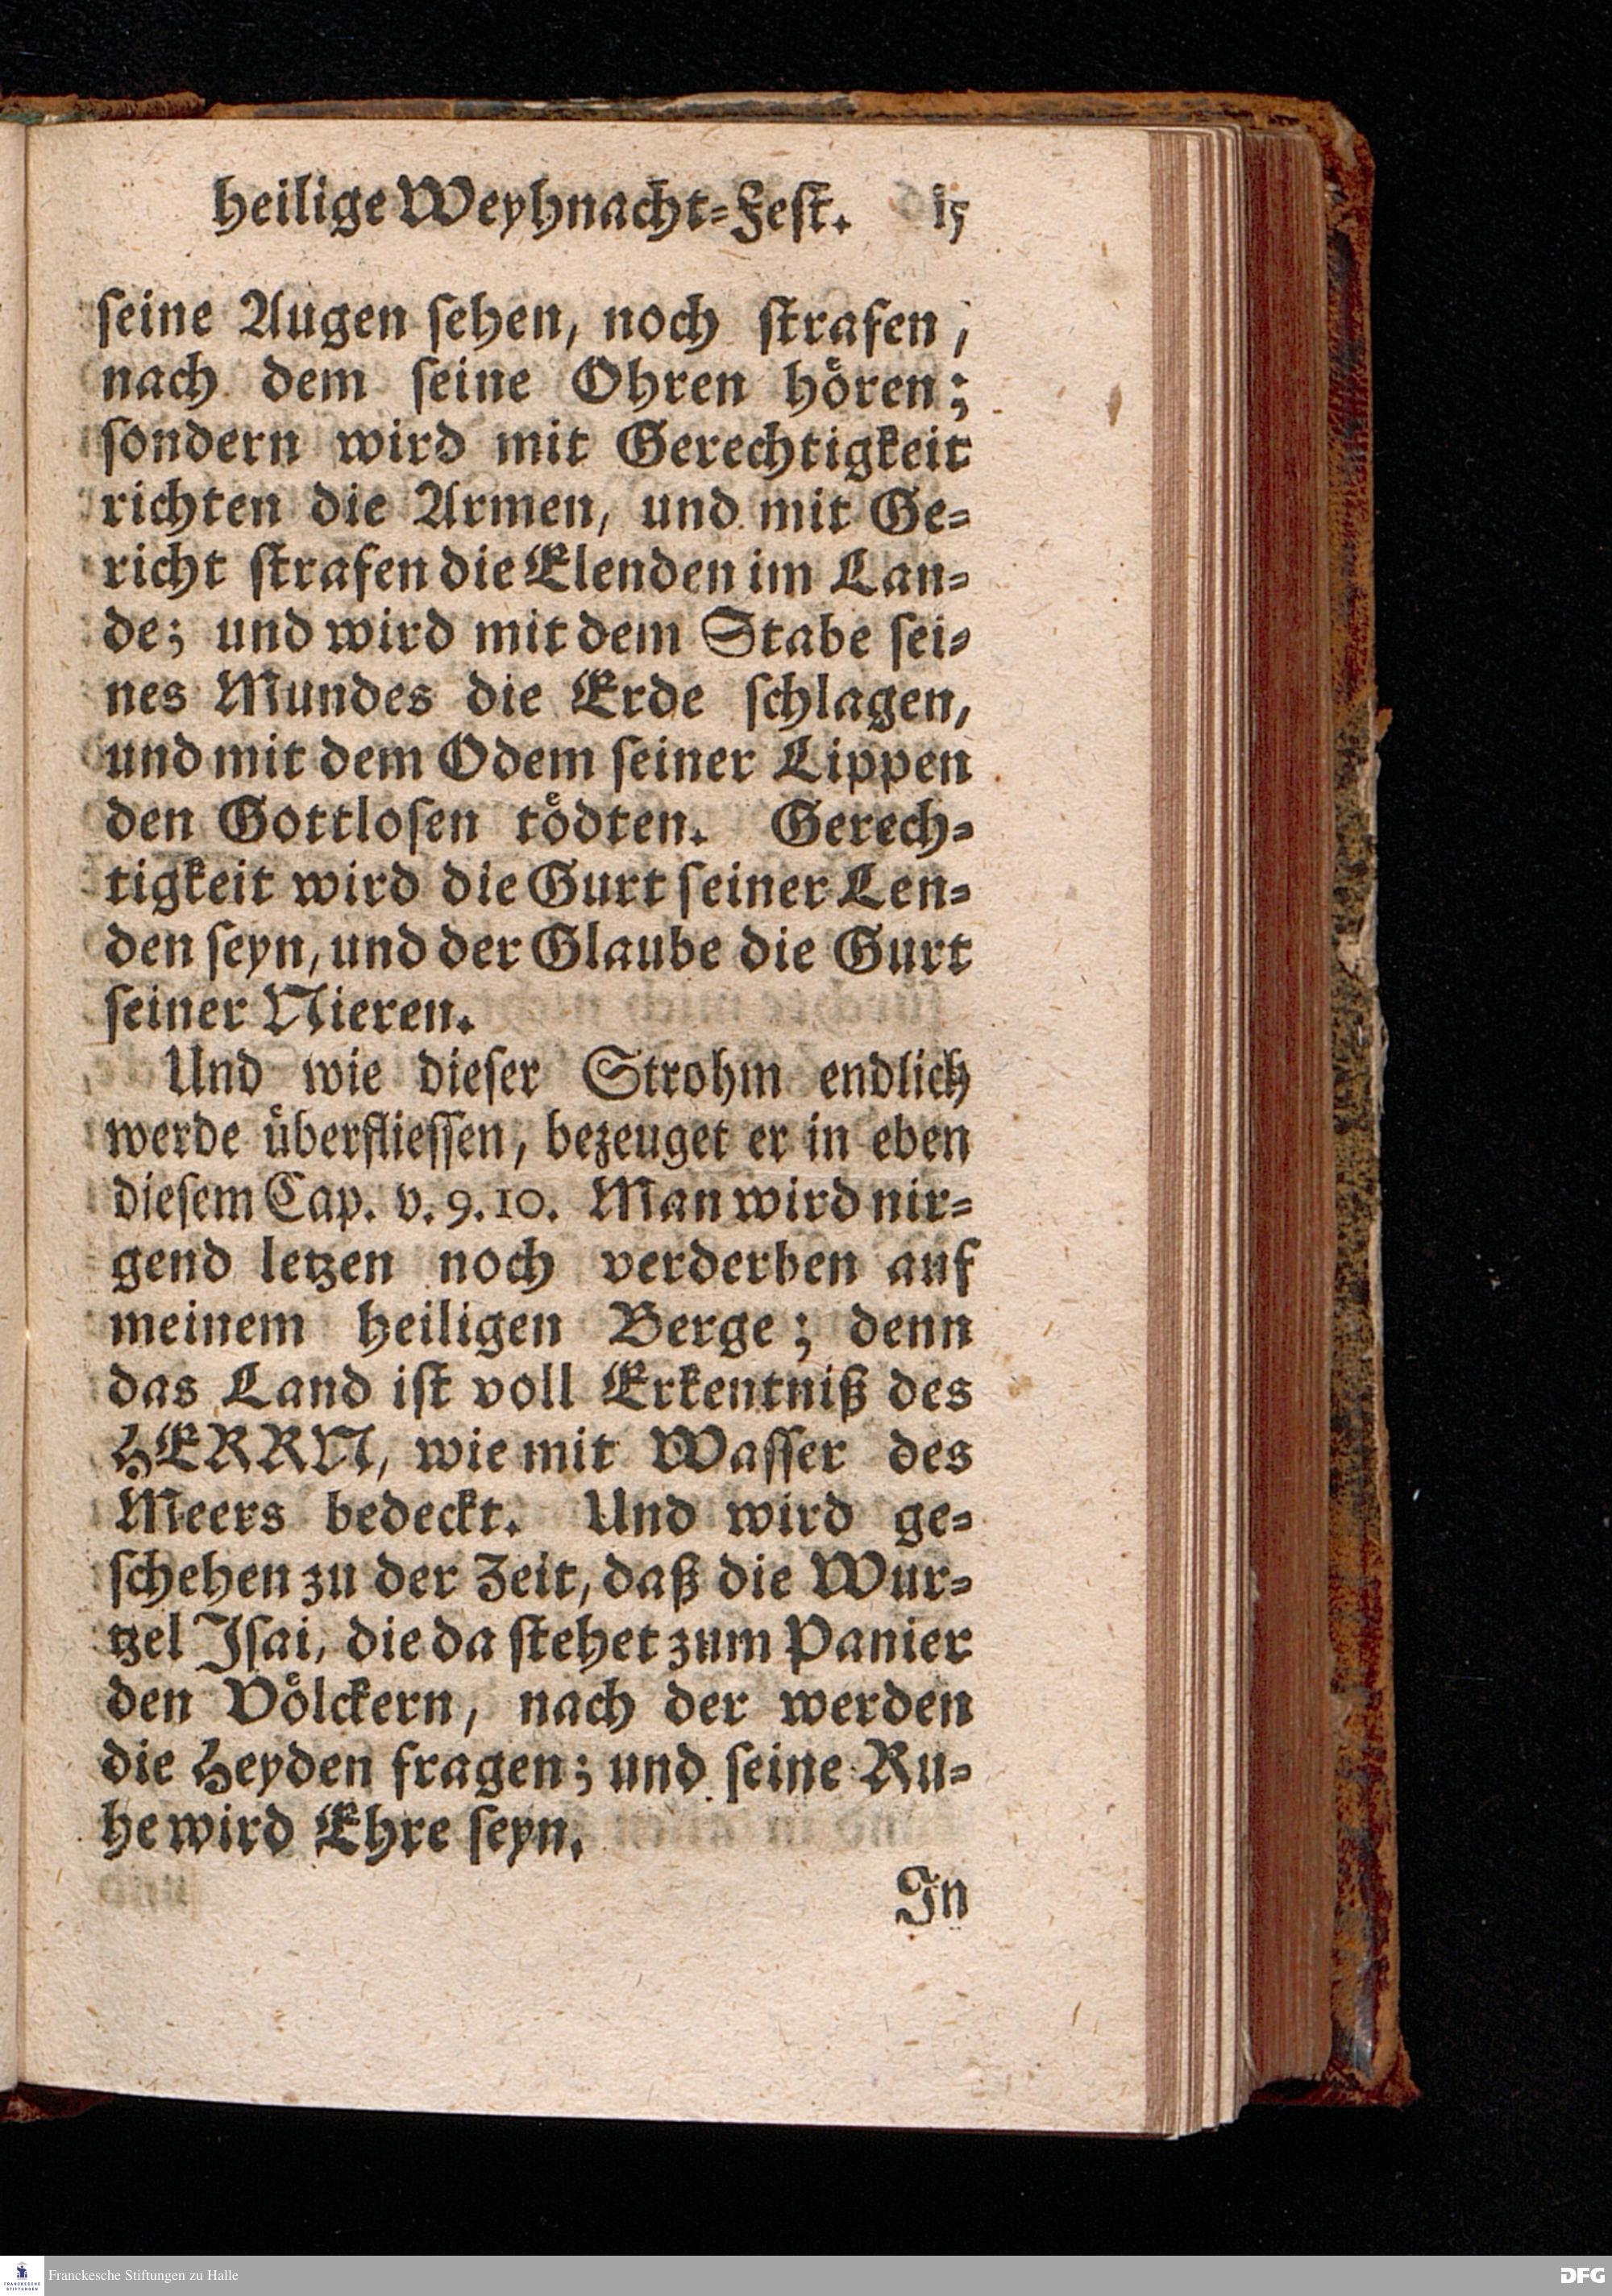 heilige Weyhnacht-Fest. 15
ſeine Augen ſehen, noch ſtrafen,
nach dem ſeine Ohren hoͤren;
ſondern wird mit Gerechtigkeit
richten die Armen, und mit Ge-
richt ſtrafen die Elenden im Lan-
de; und wird mit dem Stabe ſei-
nes Mundes die Erde ſchlagen,
und mit dem Odem ſeiner Lippen
den Gottloſen toͤdten. Gerech-
tigkeit wird die Gurt ſeiner Len-
den ſeyn, und der Glaube die Gurt
ſeiner Nieren.
Und wie dieſer Strohm endlich
werde uͤberflieſſen, bezeuget er in eben
dieſem Cap. v. 9. 10. Man wird nir-
gend letzen noch verderben auf
meinem heiligen Berge; denn
das Land iſt voll Erkentniß des
HERRN, wie mit Waſſer des
Meers bedeckt. Und wird ge-
ſchehen zu der Zeit, daß die Wur-
tzel Iſai, die da ſtehet zum Panier
den Voͤlckern, nach der werden
die Heyden fragen; und ſeine Ru-
he wird Ehre ſeyn.
In
FRANCKESCHE
STIFTUNGEN
Franckesche Stiftungen zu Halle
DFG